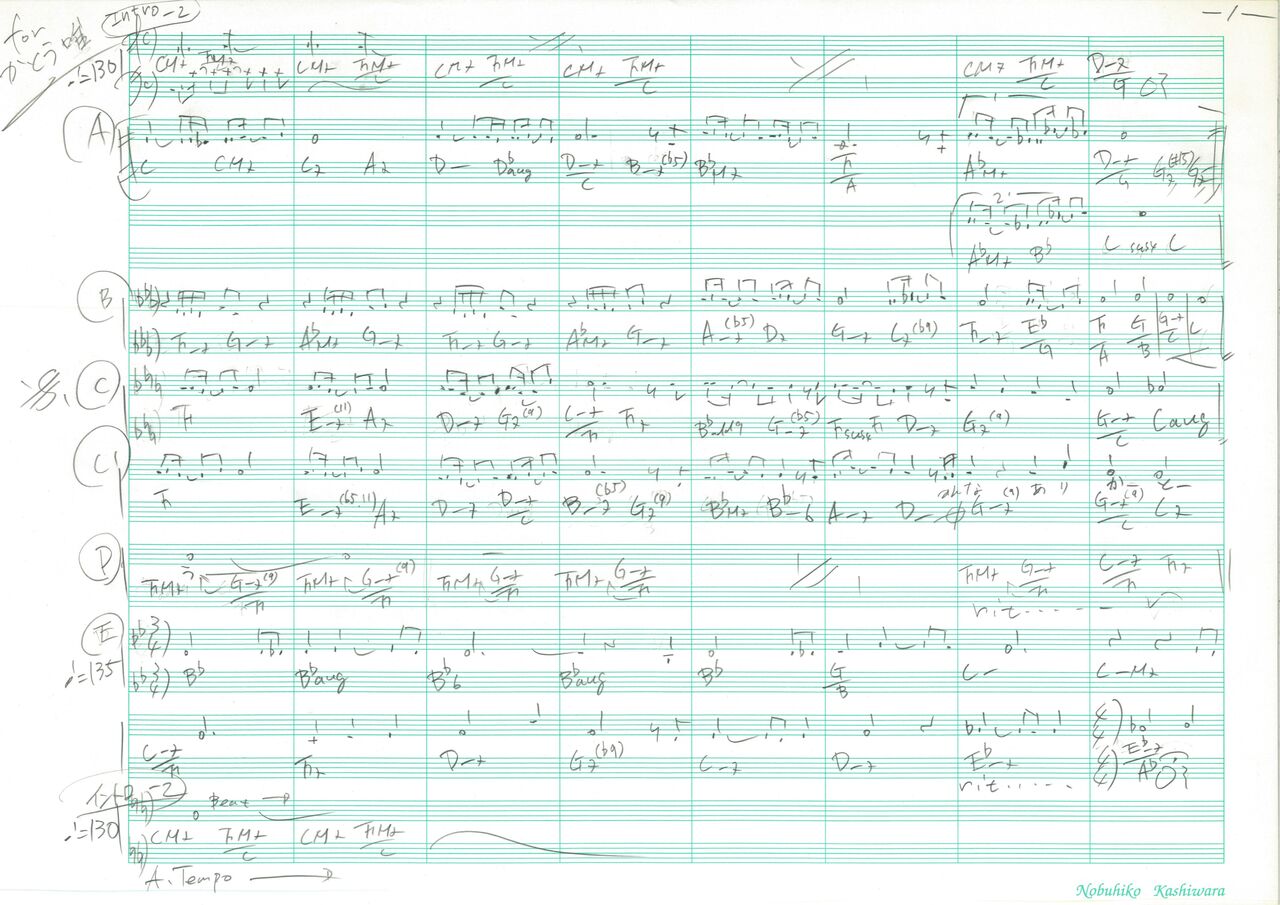 for
かとう唯
Intro-2
-1-
♩=130
CM7 FM7 CM7 FM7/C CM7 FM7/C CM7 FM7/C CM7 FM7/C D-7/G
A
C CM7 C7 A7 D- D♭aug D-7/C B-7(♭5) B♭M7 F/A A♭M7 D-7/G G7(#5)/G7
2.
A♭M7 B♭ C sus4 C
B
F-7 G-7 A♭M7 G-7 F-7 G-7 A♭M7 G-7 A-7(♭5) D7 G-7 C7(♭9) F-7 E♭/G F/A G/B G-7/C C
C
F E-7(11) A7 D-7 G7(9) C-7/F F7 B♭-add9 G-7(♭5) Fsus4 F D-7 G7(9) G-7/C Caug
C'
みんな あり がーとー
F E-7(♭5 11) A7 D-7 D-7/C B-7(♭5) G7(9) B♭M7 B♭-6 A-7 D- G-7(9) G-7(9)/C C7
D
う
FM7 G-7(9)/F FM7 G-7(9)/F FM7 G-7/F FM7 G-7/F FM7 G-7/F C-7/F F7
rit......
E
3/4
♩=135
3/4
B♭ B♭aug B♭6 B♭aug B♭ G/B C- C-M7
4/4
C-7/F F7 D-7 G7(♭9) C-7 D-7 E♭-7 E♭-7/A♭
4/4
rit.....
イントロ-2
Beat →
♩=130
CM7 FM7/C CM7 FM7/C
A.Tempo →
Nobuhiko Kashiwara